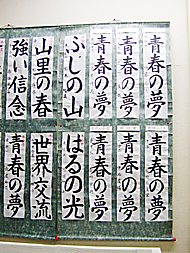 青春の夢
青春の夢
青春の夢
ふじの山
山里の春
強い信念
青春の夢
青春の夢
青春の夢
はるの光
世界交流
青春の夢